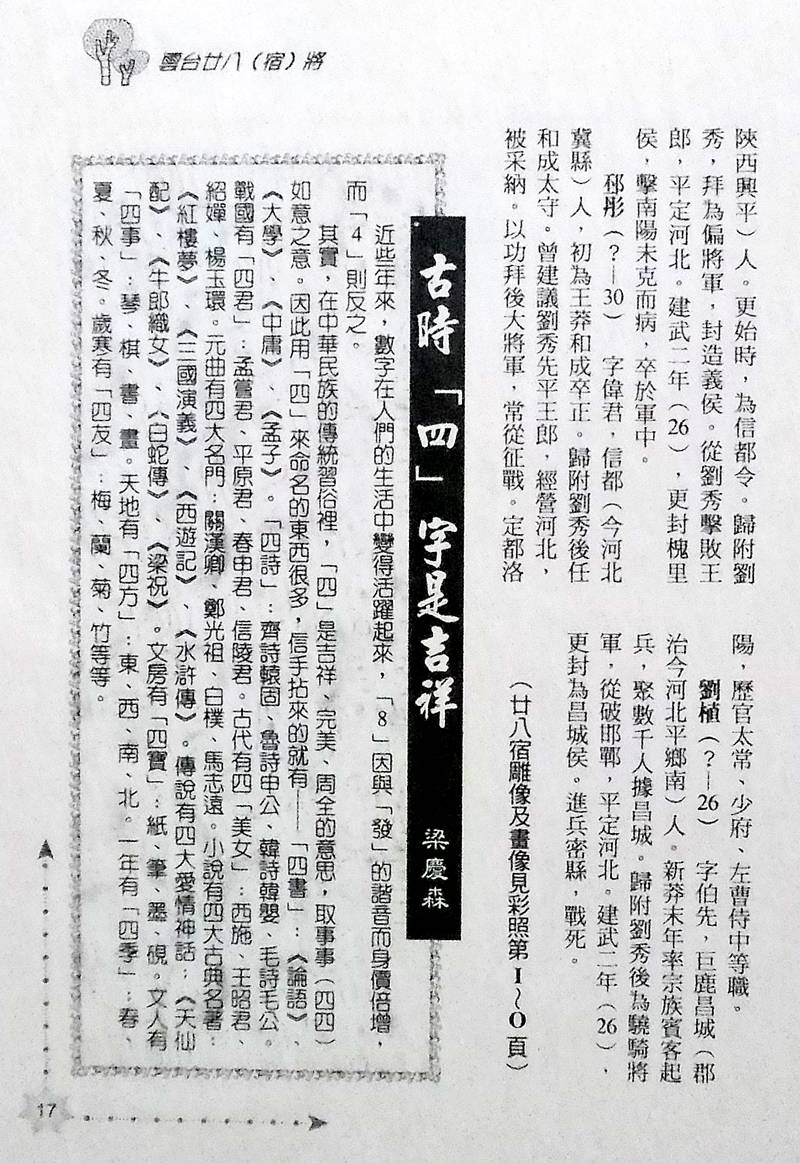 雲台廿八（宿）將
陝西興平）人。更始時，為信都令。歸附劉
秀，拜為偏將軍，封造義侯。從劉秀擊敗王
郎，平定河北。建武二年（26），更封槐里
侯，擊南陽未克而病，卒於軍中。
邳彤（？—30）　字偉君，信都（今河北
冀縣）人，初為王莽和成卒正。歸附劉秀後任
和成太守。曾建議劉秀先平王郎，經營河北，
被采納。以功拜後大將軍，常從征戰。定都洛
陽，歷官太常、少府、左曹侍中等職。
劉植（？—26）　字伯先，巨鹿昌城（郡
治今河北平鄉南）人。新莽末年率宗族賓客起
兵，聚數千人據昌城。歸附劉秀後為驍騎將
軍，從破邯鄲，平定河北。建武二年（26），
更封為昌城侯。進兵密縣，戰死。
（廿八宿雕像及畫像見彩照第I～O頁）
古時「四」字是吉祥　梁慶森
近些年來，數字在人們的生活中變得活躍起來，「8」因與「發」的諧音而身價倍增，
而「4」則反之。
其實，在中華民族的傳統習俗裡，「四」是吉祥、完美、周全的意思，取事事（四四）
如意之意。因此用「四」來命名的東西很多，信手拈來的就有——「四書」：《論語》、
《大學》、《中庸》、《孟子》。「四詩」：齊詩轅固、魯詩申公、韓詩韓嬰、毛詩毛公。
戰國有「四君」：孟嘗君、平原君、春申君、信陵君。古代有四「美女」：西施、王昭君、
紹嬋、楊玉環。元曲有四大名門：關漢卿、鄭光祖、白樸、馬志遠。小說有四大古典名著：
《紅樓夢》、《三國演義》、《西遊記》、《水滸傳》。傳說有四大愛情神話：《天仙
配》、《牛郎織女》、《白蛇傳》、《梁祝》。文房有「四寶」：紙、筆、墨、硯。文人有
「四事」：琴、棋、書、畫。天地有「四方」：東、西、南、北。一年有「四季」：春、
夏、秋、冬。歲寒有「四友」：梅、蘭、菊、竹等等。
17